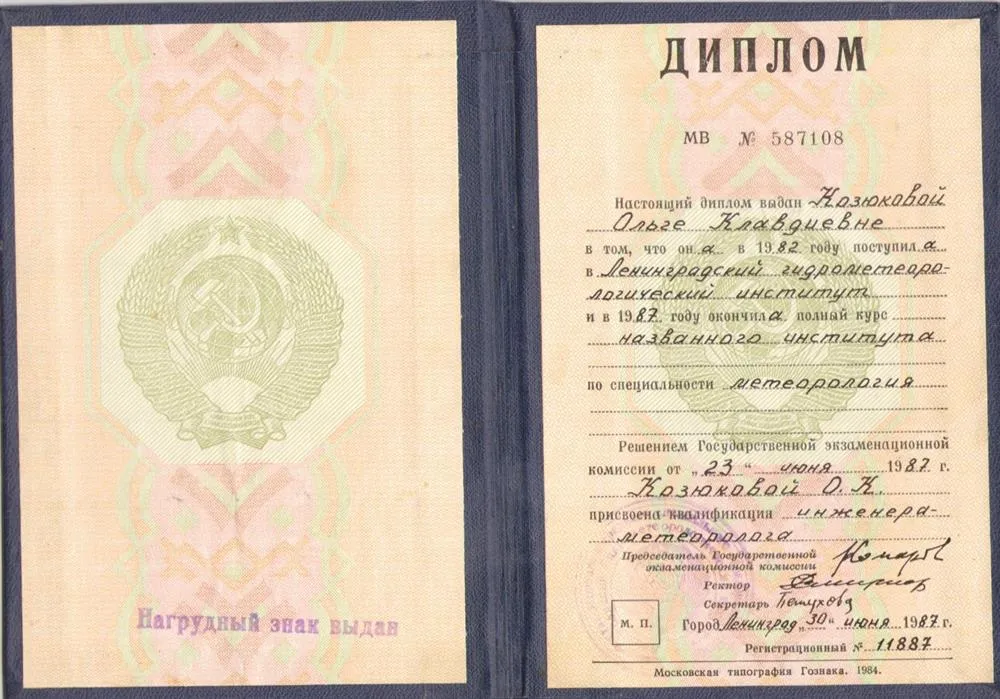 Нагрудный знак выдан
ДИПЛОМ
МВ № 587108
Настоящий диплом выдан Козюковой
Ольге Клавдиевне
в том, что он а в 1982 году поступил а
в Ленинградский гидрометеоро-
логический институт
и в 1987 году окончил а полный курс
названного института
по специальности метеорология
Решением Государственной экзаменационной
комиссии от „23“ июня 1987 г.
Козюковой О.К.
присвоена квалификация инженера-
метеоролога
Председатель Государственной
экзаменационной комиссии
Ректор
Секретарь Петухова
М. П. Город Ленинград „30“ июня 1987 г.
Регистрационный № 11887
Московская типография Гознака. 1984.